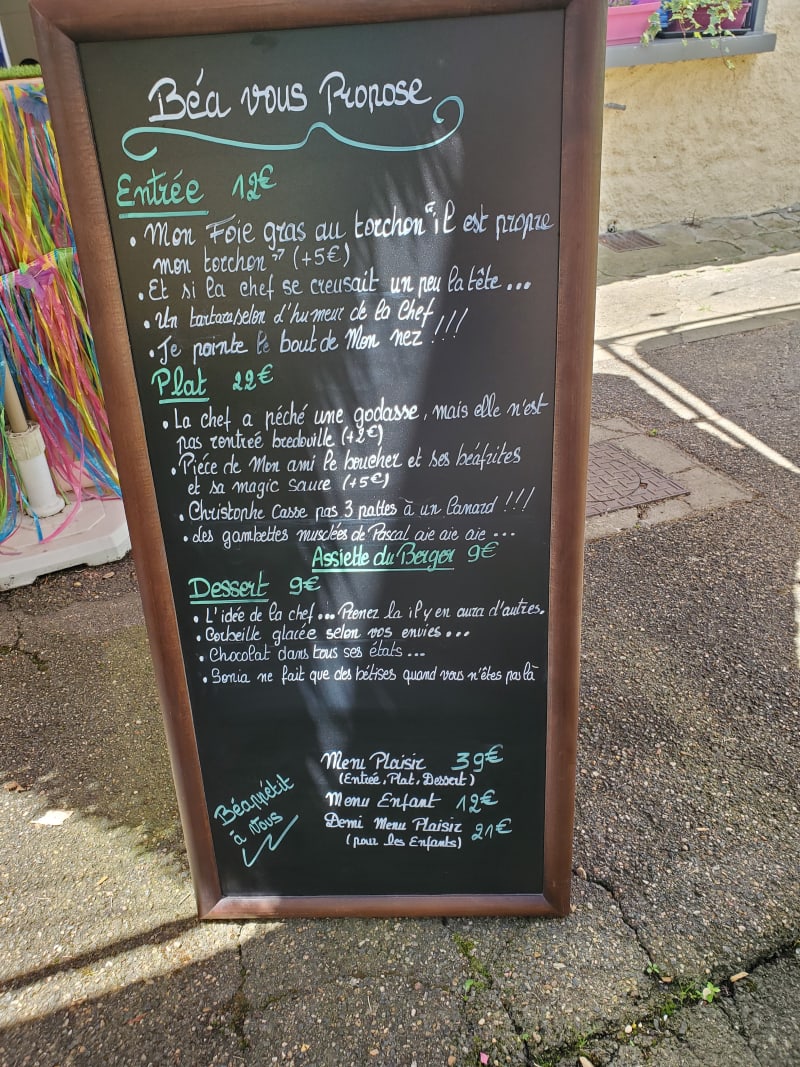 Béa vous Propose
Entrée 12€
• Mon Foie gras au torchon "il est propre
mon torchon" (+5€)
• Et si la chef se creusait un peu la tête...
• Un tartare selon d'humeur de la Chef
• Je pointe le bout de Mon nez !!!
Plat 22€
• La chef a péché une godasse, mais elle n'est
pas rentreé bredouille (+2€)
• Piéce de Mon ami le boucher et ses béafrites
et sa magic sauce (+5€)
• Christophe Casse pas 3 pattes à un Canard !!!
• des gambettes musclées de Pascal aie aie aie ...
Assiette du Berger 9€
Dessert 9€
• L'idée de la chef... Prenez la il y en aura d'autres.
• Corbeille glacée selon vos envies...
• Chocolat dans tous ses états...
• Sonia ne fait que des bétises quand vous n'êtes pas là
Menu Plaisir 39€
(Entrée, Plat, Dessert)
Menu Enfant 12€
Demi Menu Plaisir 21€
(pour les Enfants)
Béappétit
à vous